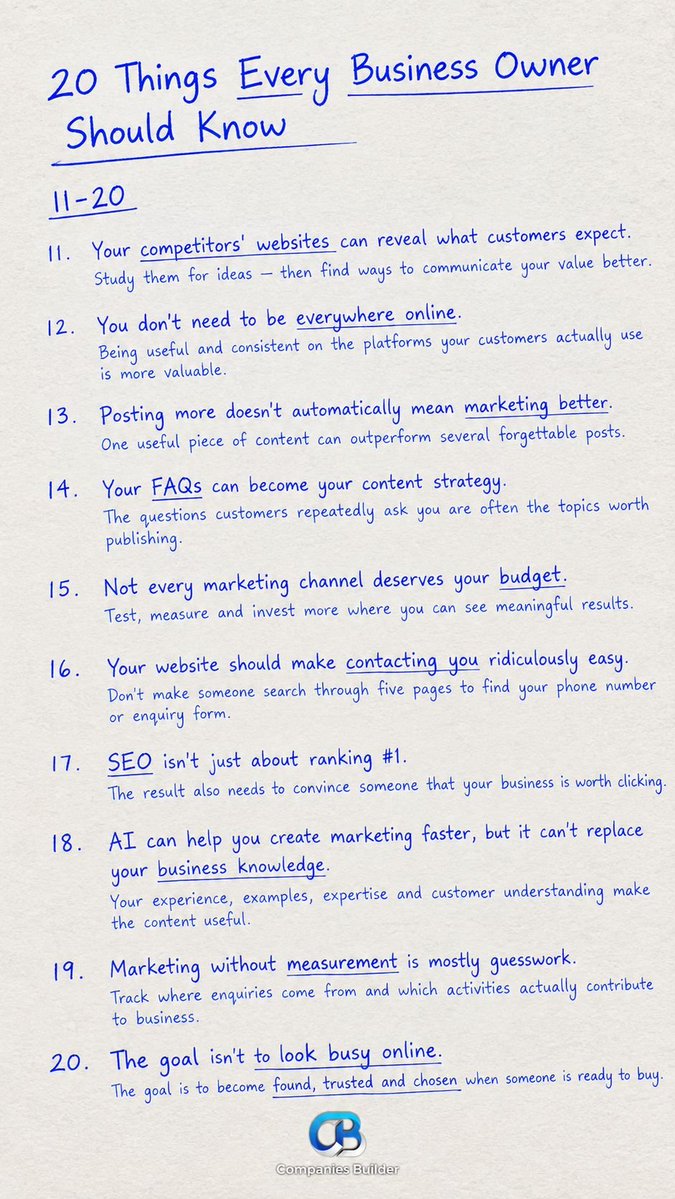 20 Things Every Business Owner
Should Know
11-20
11. Your competitors' websites can reveal what customers expect.
Study them for ideas — then find ways to communicate your value better.
12. You don't need to be everywhere online.
Being useful and consistent on the platforms your customers actually use
is more valuable.
13. Posting more doesn't automatically mean marketing better.
One useful piece of content can outperform several forgettable posts.
14. Your FAQs can become your content strategy.
The questions customers repeatedly ask you are often the topics worth
publishing.
15. Not every marketing channel deserves your budget.
Test, measure and invest more where you can see meaningful results.
16. Your website should make contacting you ridiculously easy.
Don't make someone search through five pages to find your phone number
or enquiry form.
17. SEO isn't just about ranking #1.
The result also needs to convince someone that your business is worth clicking.
18. AI can help you create marketing faster, but it can't replace
your business knowledge.
Your experience, examples, expertise and customer understanding make
the content useful.
19. Marketing without measurement is mostly guesswork.
Track where enquiries come from and which activities actually contribute
to business.
20. The goal isn't to look busy online.
The goal is to become found, trusted and chosen when someone is ready to buy.
CB
Companies Builder